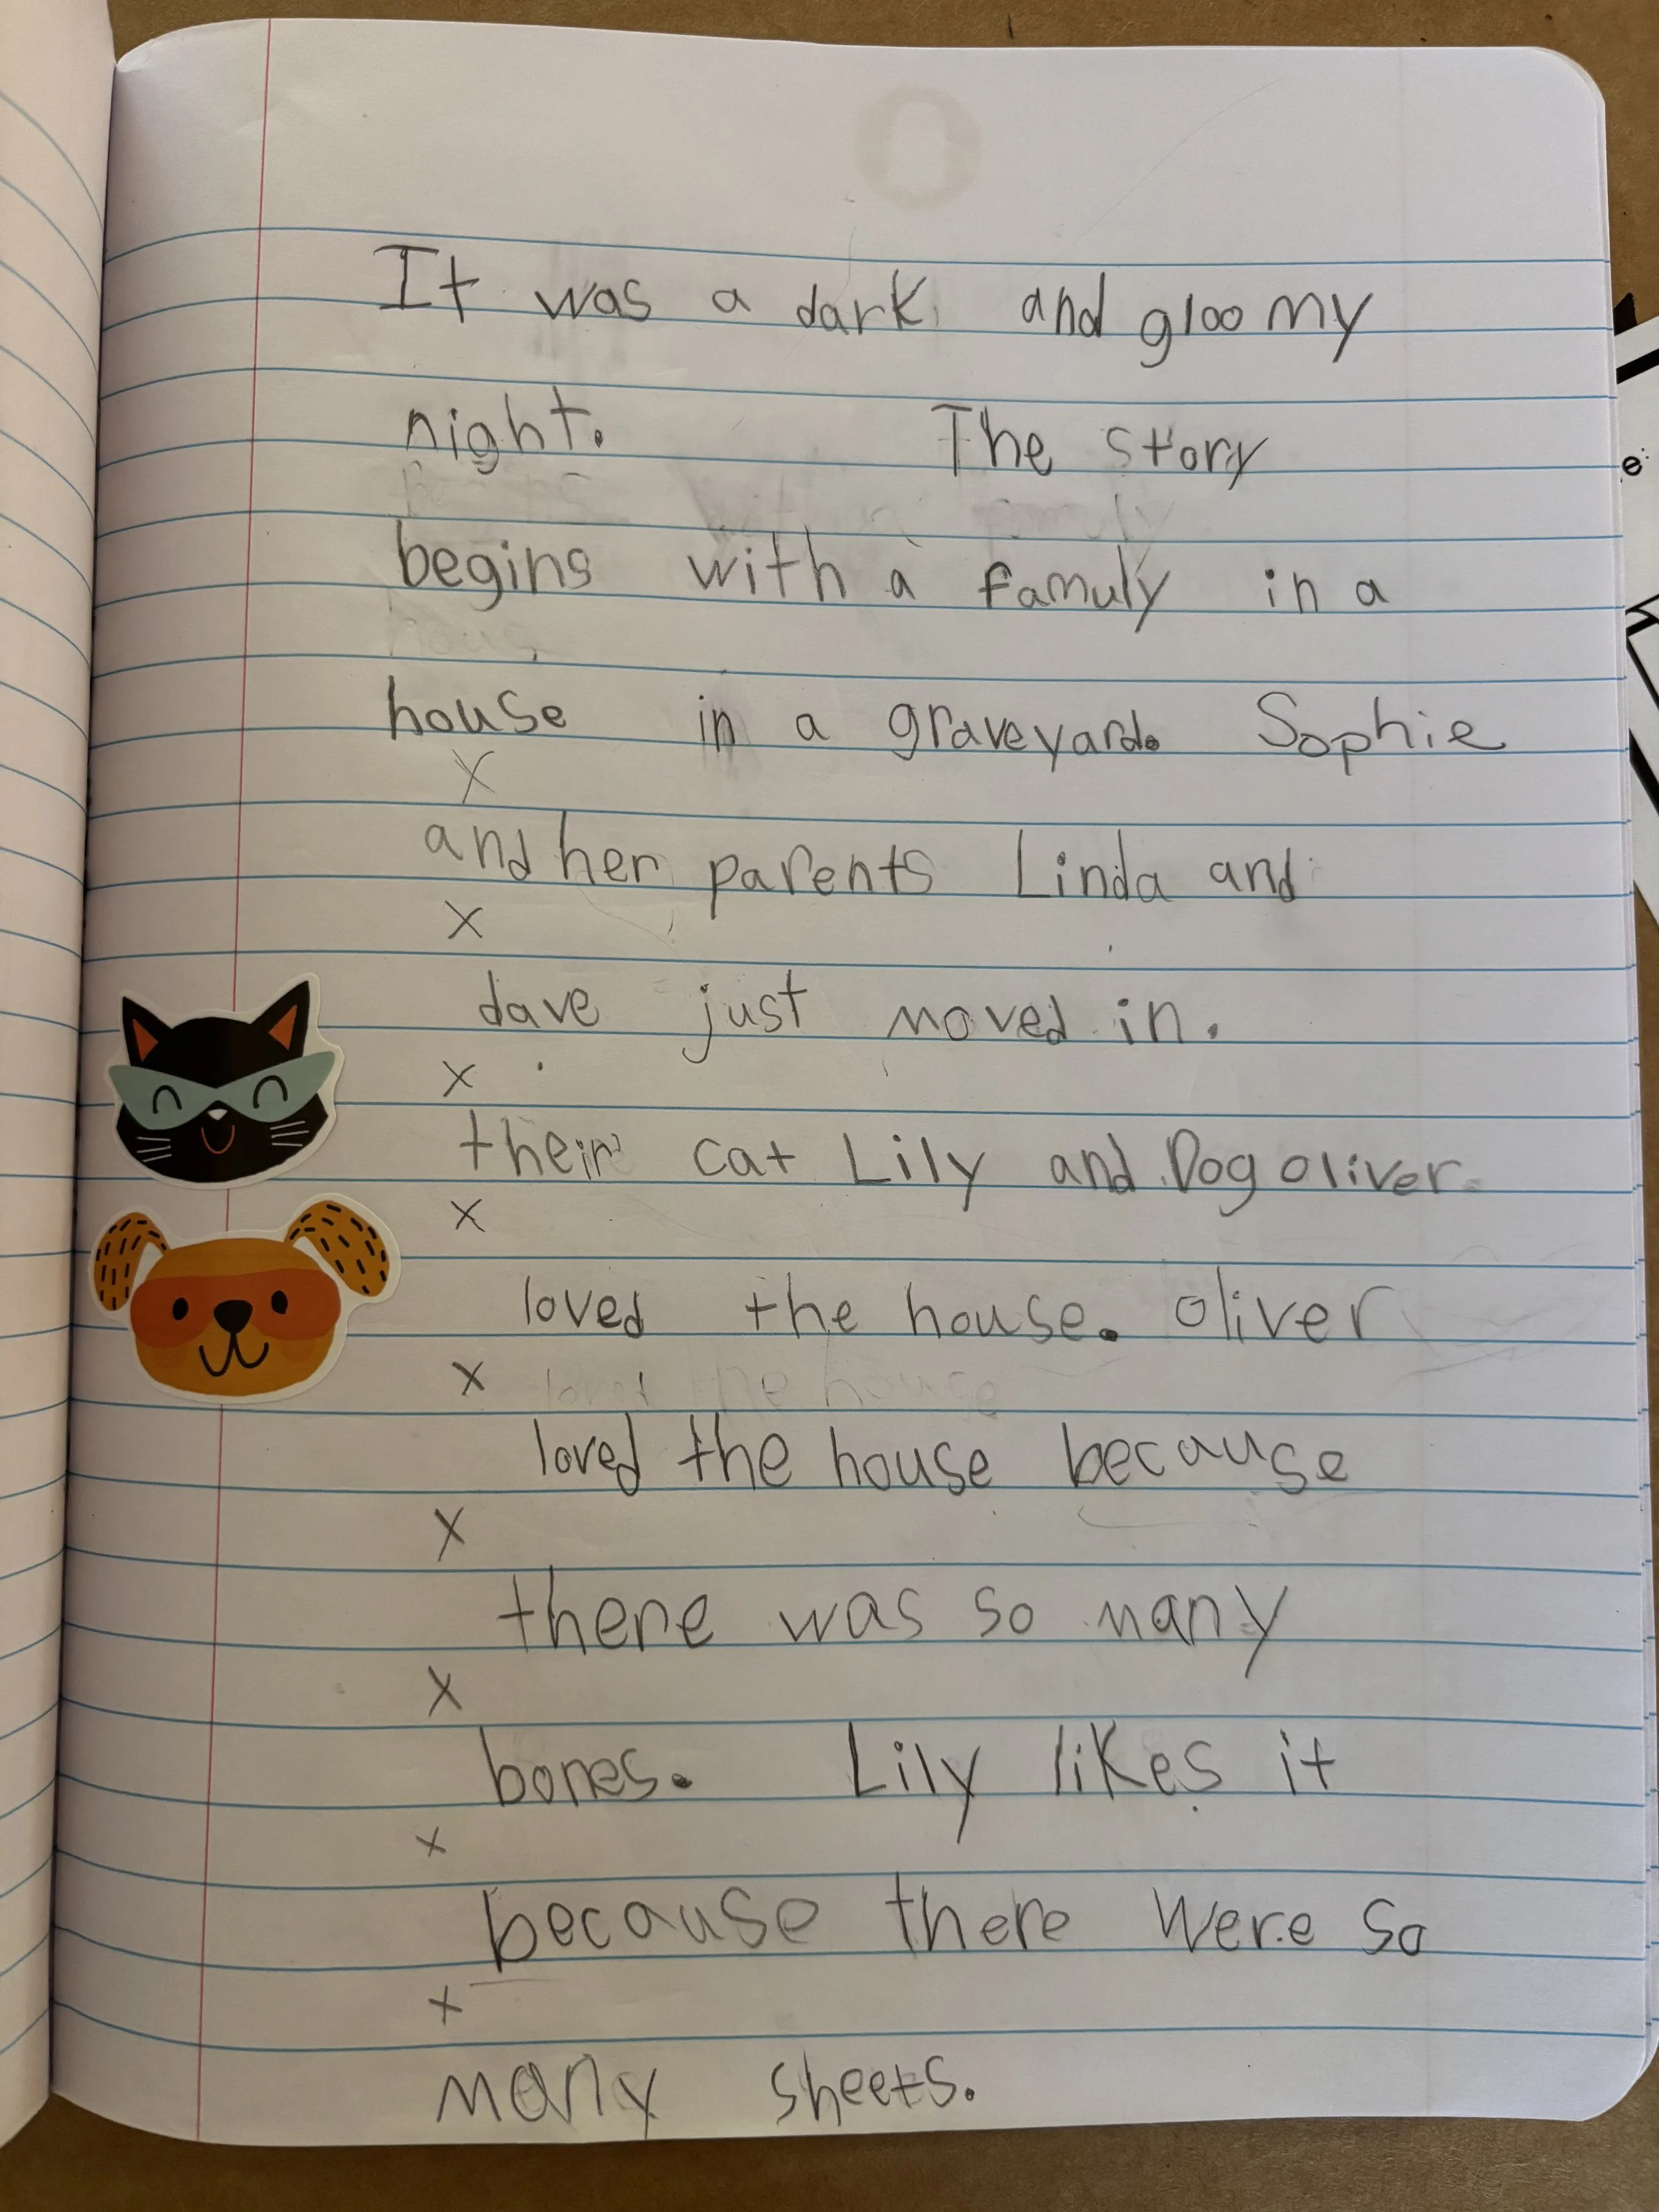 It was a dark and gloomy
night. The story
begins with a famuly in a
house in a graveyard. Sophie
X
and her parents Linda and
X
dave just moved in.
X
their cat Lily and Dog oliver
X
loved the house. oliver
X
loved the house because
X
there was so many
X
bones. Lily likes it
X
because there were so
X
many sheets.
e: